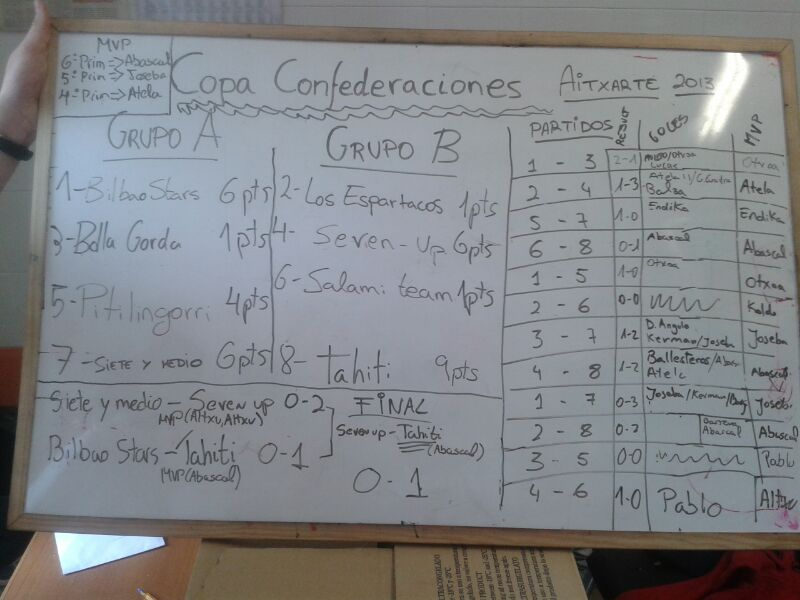 MVP
6º Prim => Abascal
5º Prim => Joseba
4º Prim => Atela
Copa Confederaciones
AITXARTE 2013
GRUPO A
1-Bilbao Stars 6pts
3-Bolla Gorda 1pts
5-Pitilingorri 4pts
7-SIETE Y MEDIO 6pts
GRUPO B
2-Los Espartacos 1pts
4- Seven-up 6pts
6-Salami team 1pts
8-Tahiti 9pts
PARTIDOS GOLES MVP
1 - 3 2-1 Otxoa
2 - 4 1-3 Atela Atela
5 - 7 1-0 Endika Endika
6 - 8 0-1 Abascal Abascal
1 - 5 1-0 Otxoa Otxoa
2 - 6 0-0 Koldo
3 - 7 1-2 D. Angulo Kerman/Joseba Joseba
4 - 8 1-2 Ballesteros/ Atela Abascal
1 - 7 0-3 Joseba/Kerman/ Joseba
2 - 8 Abascal Abascal
3 - 5 0-0 Pablo
4 - 6 1-0 Pablo
Siete y medio - Seven up 0-2
Bilbao Stars - Tahiti 0-1
MVP(Abascal)
FINAL
Seven up - Tahiti
(Abascal)
0-1